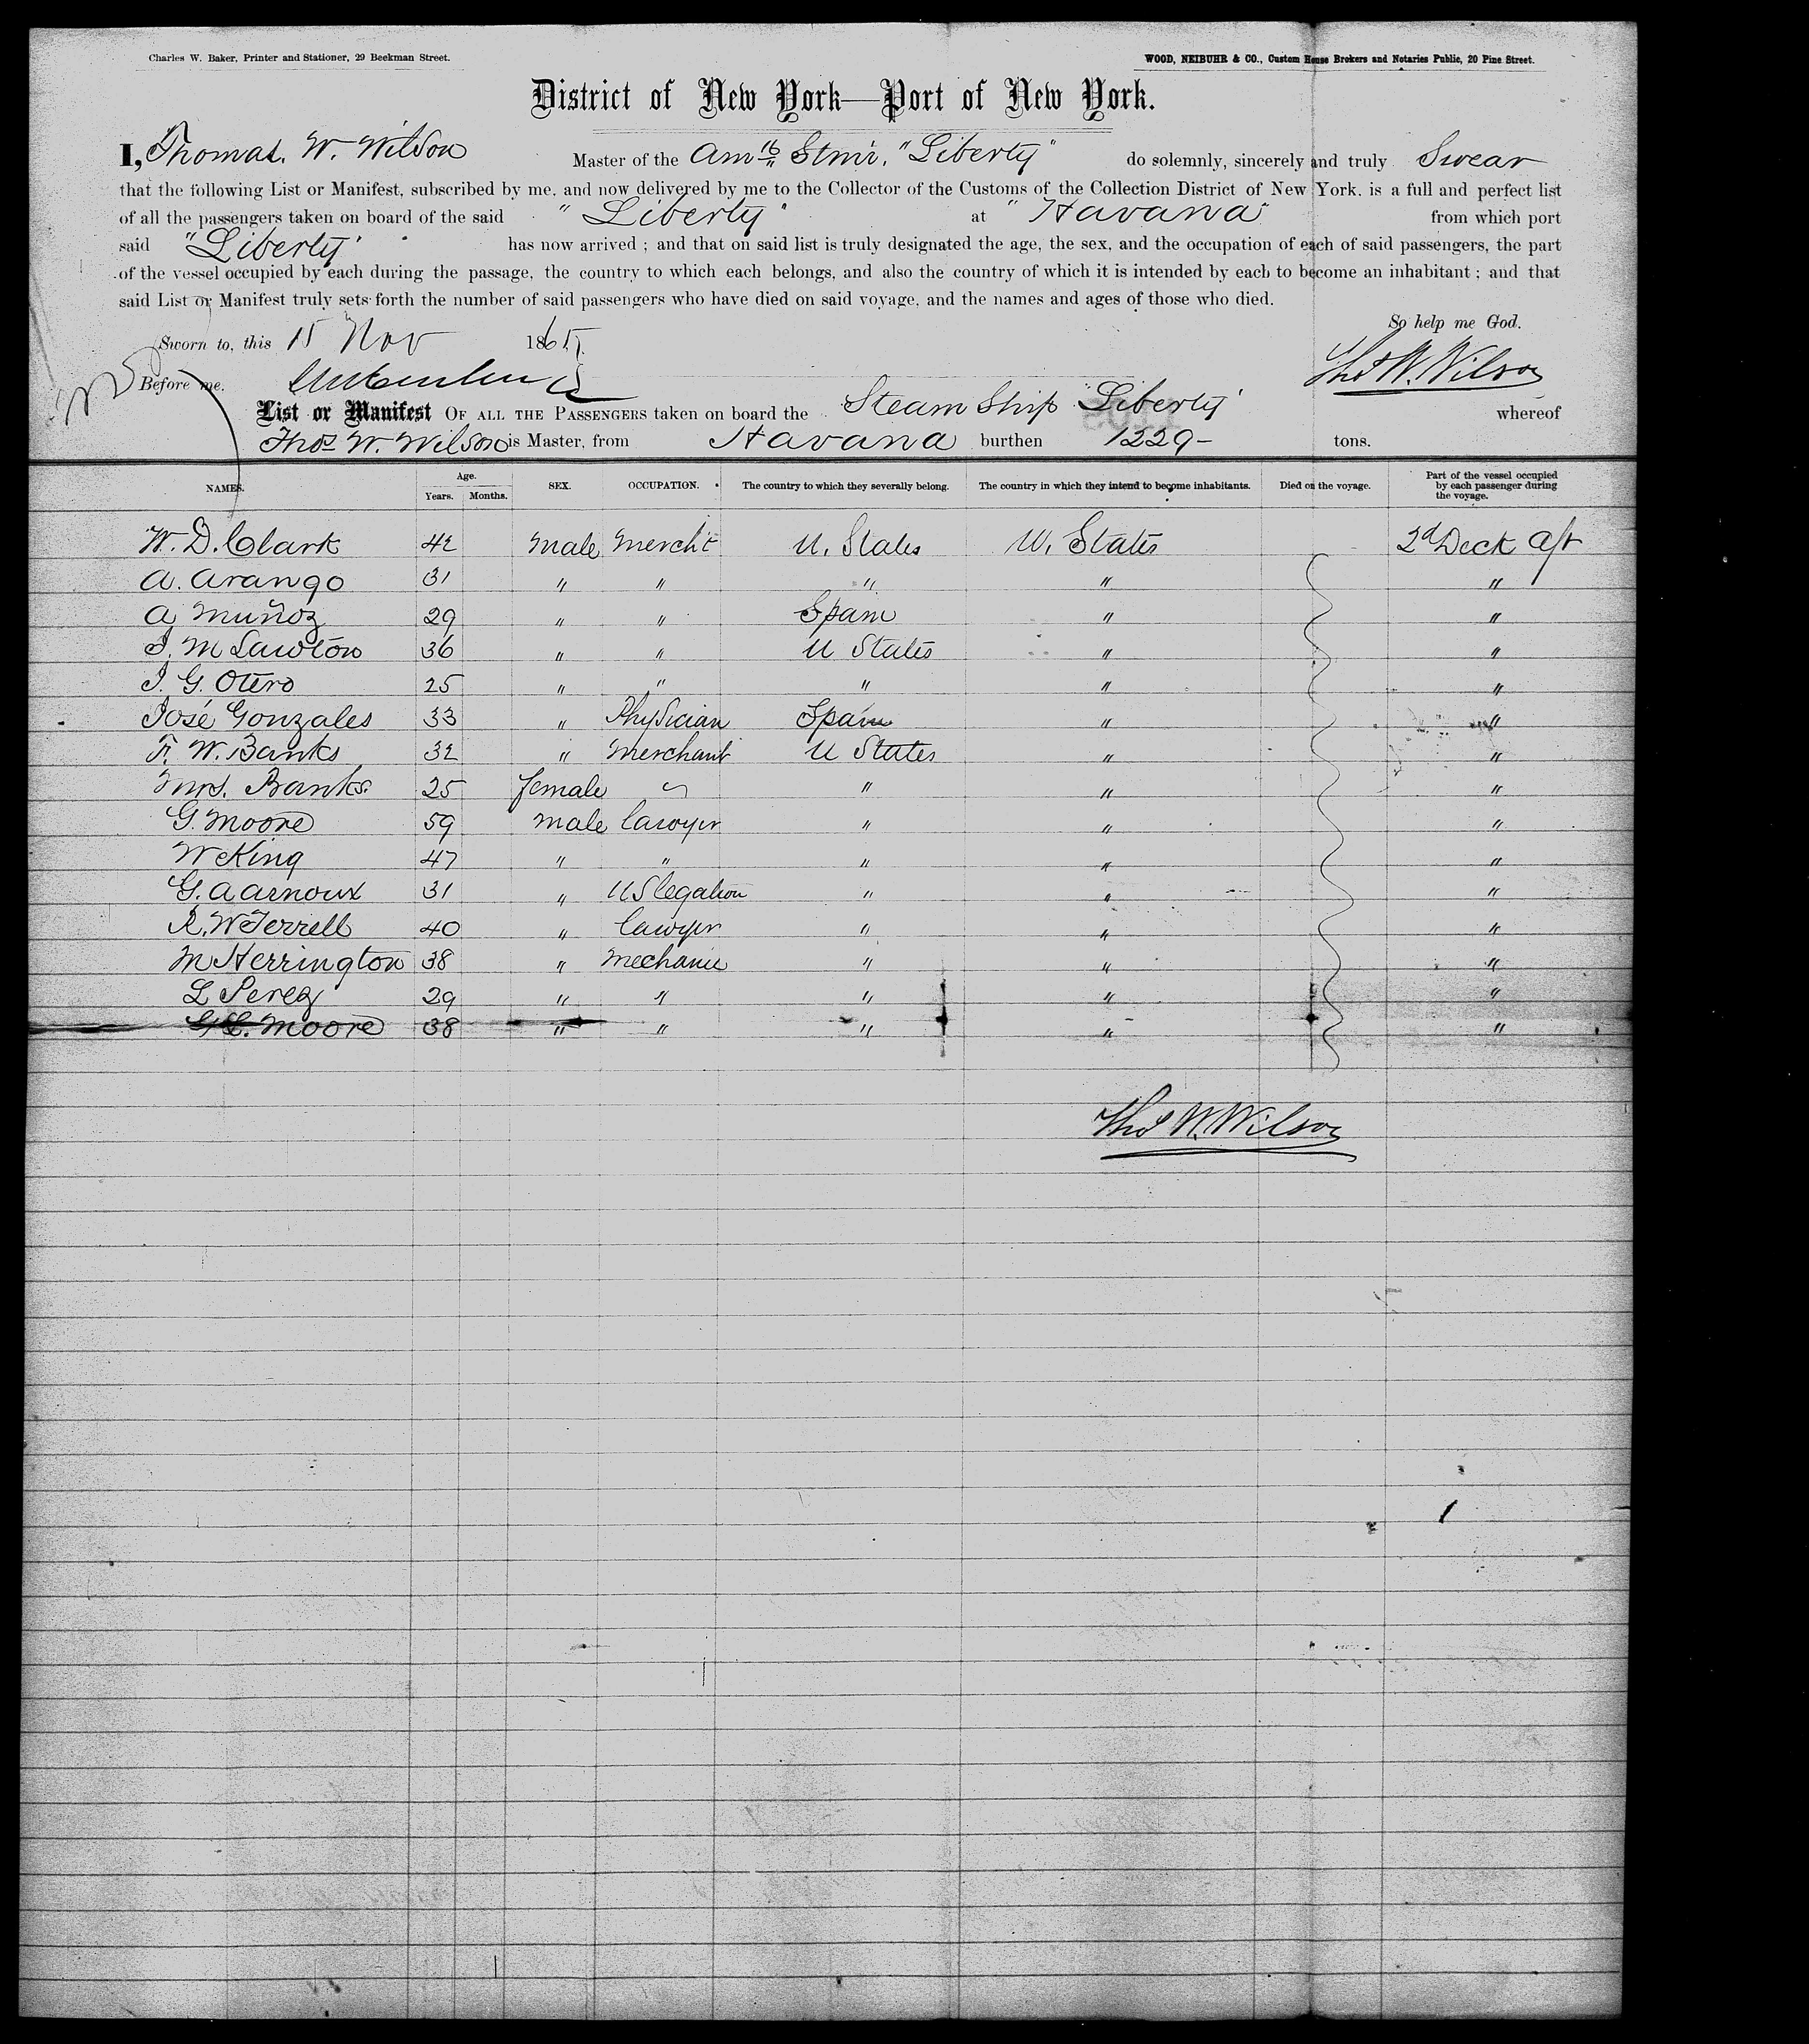 Charles W. Baker, Printer and Stationer, 29 Beekman Street. WOOD, NEIBUHR & CO., Custom House Brokers and Notaries Public, 20 Pine Street.
District of New York—Port of New York.
I, Thomas. W. Wilson Master of the Am Stmr. "Liberty" do solemnly, sincerely and truly Swear
that the following List or Manifest, subscribed by me, and now delivered by me to the Collector of the Customs of the Collection District of New York, is a full and perfect list
of all the passengers taken on board of the said "Liberty" at "Havana" from which port
said "Liberty" has now arrived ; and that on said list is truly designated the age, the sex, and the occupation of each of said passengers, the part
of the vessel occupied by each during the passage, the country to which each belongs, and also the country of which it is intended by each to become an inhabitant ; and that
said List or Manifest truly sets forth the number of said passengers who have died on said voyage, and the names and ages of those who died.
So help me God.
Sworn to, this 15 Nov 1865
Thos W. Wilson
Before me.
List or Manifest OF ALL THE PASSENGERS taken on board the Steam Ship Liberty whereof
Thos W. Wilson is Master, from Havana burthen 1229- tons.
NAMES. Age. Years. Months. SEX. OCCUPATION. The country to which they severally belong. The country in which they intend to become inhabitants. Died on the voyage. Part of the vessel occupied by each passenger during the voyage.
W. D. Clark 42 male Mercht U. States U. States 2d Deck aft
A. Arango 31 " " " " "
A Muñoz 29 " " Spain " "
J. M Lawton 36 " " U States " "
J. G. Otero 25 " " " " "
José Gonzales 33 " Physician Spain " "
F. W. Banks 32 " Merchant U States " "
Mrs. Banks. 25 female " " "
G. Moore 59 male lawyer " " "
W King 47 " " " " "
G. A Arnoux 31 " U S legation " " "
R. W Terrell 40 " lawyer " " "
M Herrington 38 " Mechanic " " "
L Perez 29 " " " " "
Moore 38 " " " " "
Thos W. Wilson